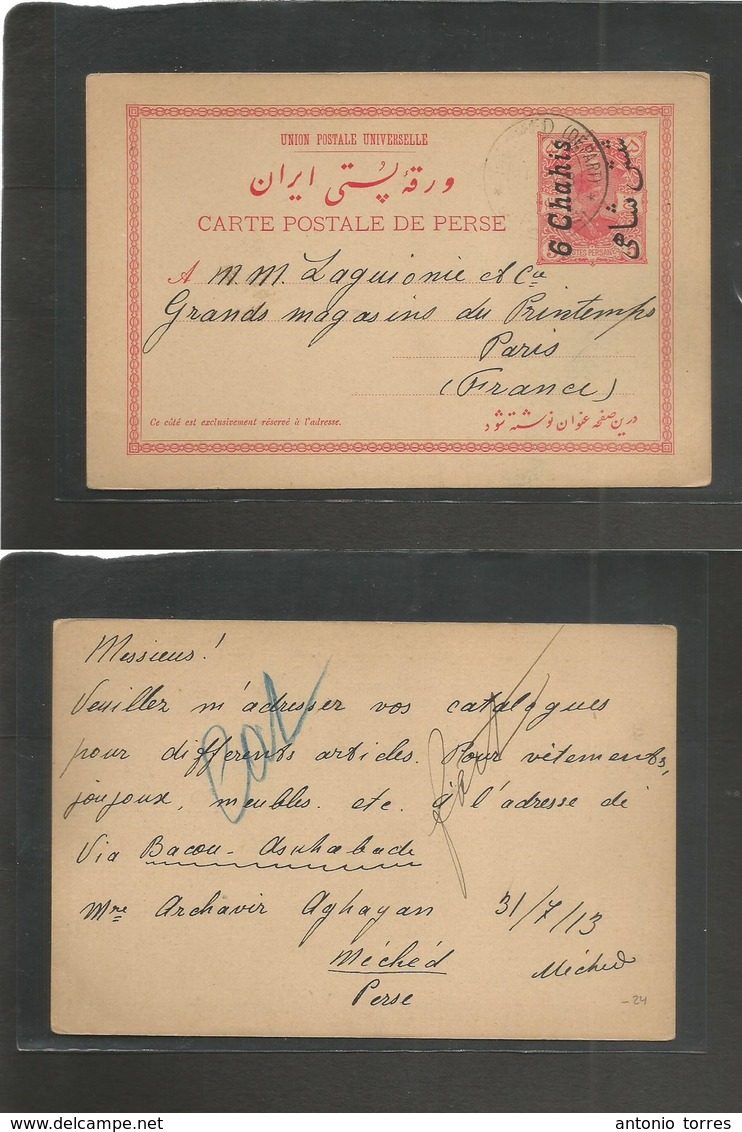 UNION POSTALE UNIVERSELLE
ورقهٔ پستی ایران
CARTE POSTALE DE PERSE
(DEPART)
6 Chahis
شش شاهی
A M.M. Laguionie & Cie
Grands magasins du Printemps
Paris
(France)
Ce côté est exclusivement réservé à l'adresse.
درین صفحه عنوان نوشته شود
Messieurs!
Veuillez m'adresser vos catalogues
pour differents articles. Pour vêtements,
joujoux, meubles. etc. à l'adresse de
Via Bacou - Asuhabade
Mme Archavir Aghayan 31/7/13
Méched Méched
Perse
-24
antonio torres